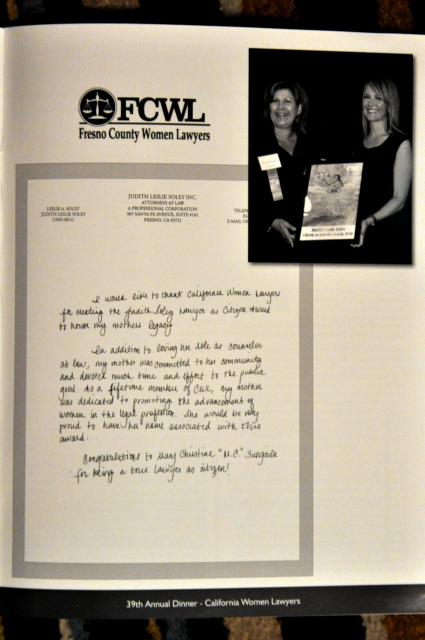 FCWL
Fresno County Women Lawyers
JUDITH LESLIE SOLEY INC.
ATTORNEYS AT LAW
A PROFESSIONAL CORPORATION
FRESNO, CA 93721
LESLIE A. SOLEY
JUDITH LESLIE SOLEY
I would like to thank California Women Lawyers
for creating the Judith Soley Lawyer as Citizen Award
to honor my mothers legacy
In addition to loving her role as counselor
at law, my mother was committed to her community
and devoted much time and effort to the public
good. As a lifetime member of CWL, my mother
was dedicated to promoting the advancement of
women in the legal profession. She would be very
proud to have her name associated with this
award.
Congratulations to Mary Christine "M.C." Sungaila
for being a true Lawyer as Citizen!
39th Annual Dinner - California Women Lawyers